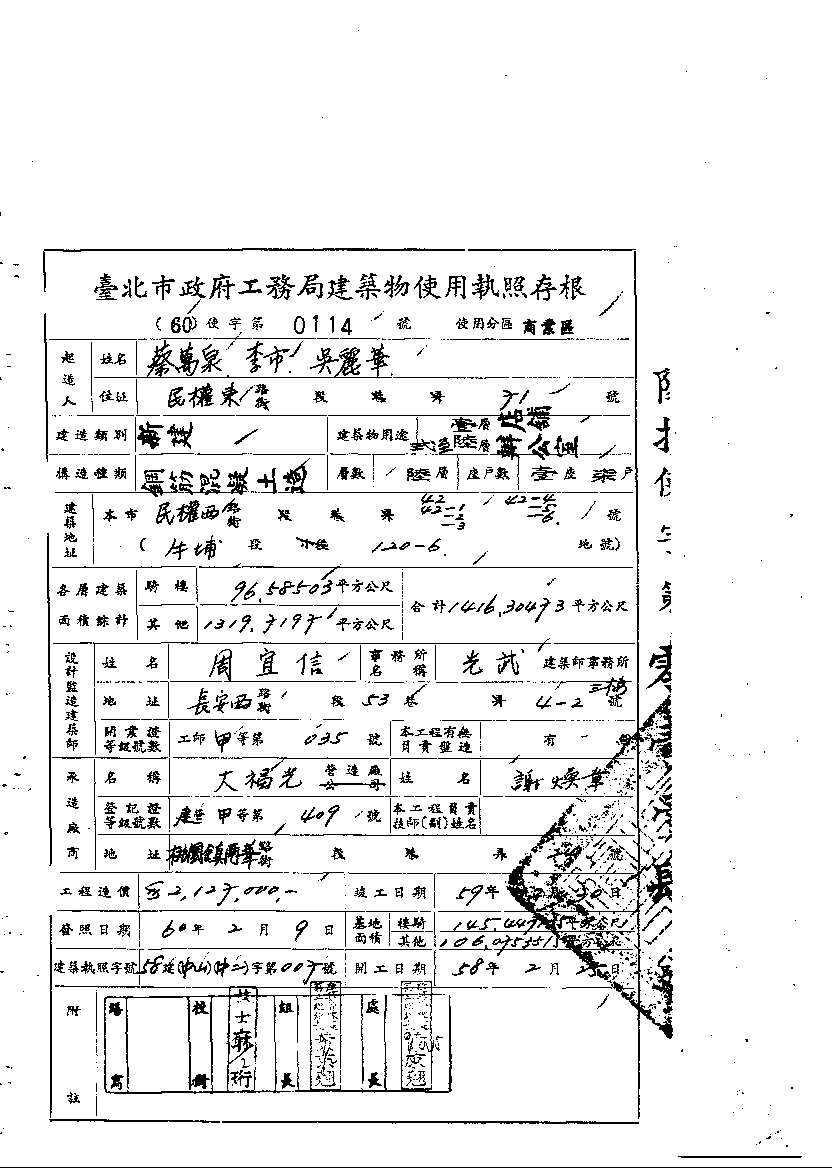 臺北市政府工務局建築物使用執照存根
(60)使字第 0114 號 使用分區 商業區
起造人 姓名 蔡萬泉 李市 吳麗華
住址 民權東路街 段 巷 弄 號
建造類別 新建 建築物用途 壹層店舖 貳至陸層辦公室
構造種類 鋼筋混凝土造 層數 陸層 座戶數 壹座柒戶
建築地址 本市 民權西路街 段 巷 弄 42 42-1 -2 -3 42-4 -5 -6 號
(牛埔 段 小段 120-6 地號)
各層建築面積總計 騎樓 96.58503平方公尺 合計 平方公尺
其他 平方公尺
設計監造建築師 姓名 周宜信 事務所名稱 光武 建築師事務所
地址 長安西路街 段 53 巷 弄 4-2 號 三樓
開業證等級號數 工師甲等第 035 號 本工程有無負責監造 有
承造廠商 名稱 大福光 營造廠公司 姓名 謝煥章
登記證等級號數 建營甲等第 409 號 本工程負責技師(副)姓名
地址 路街 段 巷 弄 號
工程造價 竣工日期 59年 月 30日
發照日期 60年 2月 9日 基地面積 樓騎 平方公尺
其他 平方公尺
建築執照字號 58建(中山)(中二)字第 號 開工日期 58年 2月 25日
附註 股 技士 組長 處長